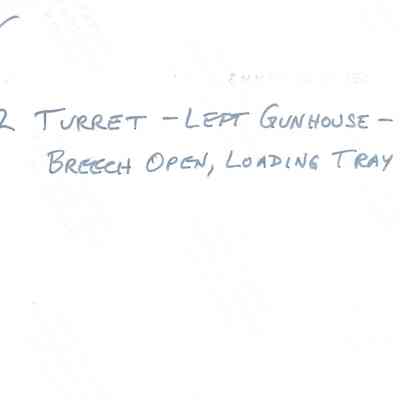 2 TURRET - LEFT GUNHOUSE -
BREECH OPEN, LOADING TRAY